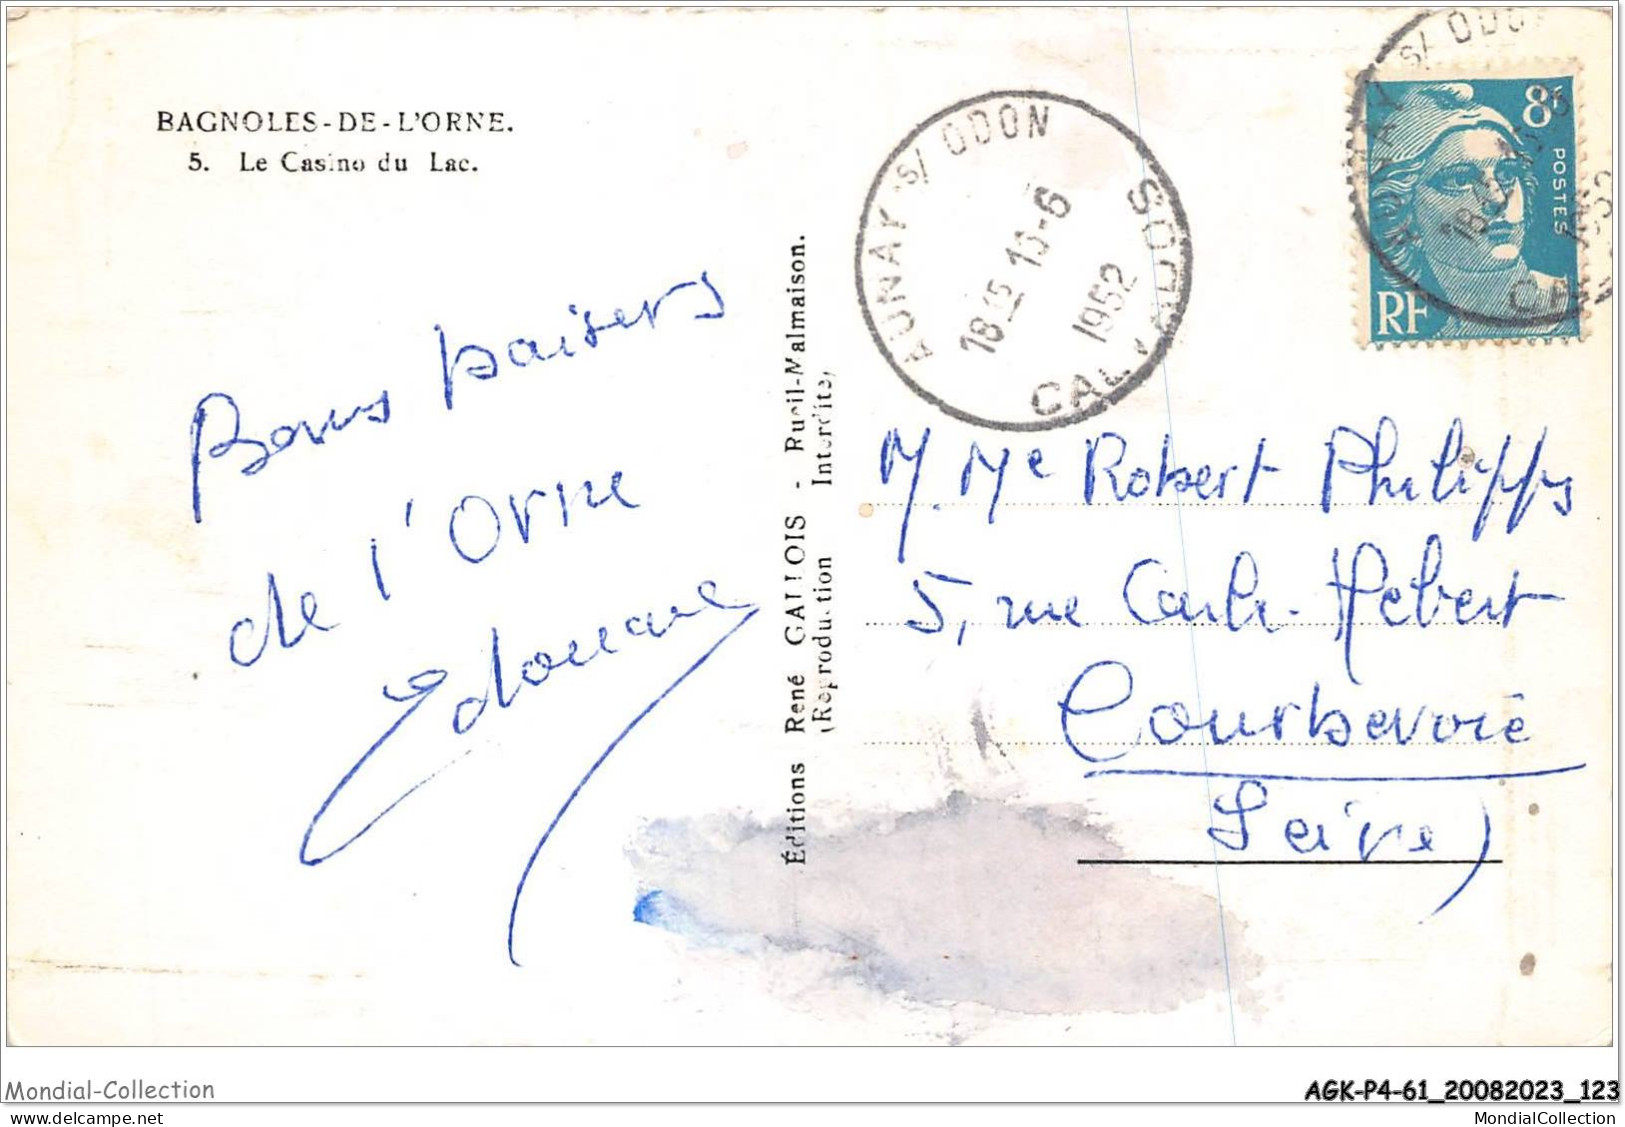 BAGNOLES-DE-L'ORNE.
5. Le Casino du Lac.
Bons baisers
de l'Orne
Edouard
Éditions René GALLOIS - Rueil-Malmaison.
(Reproduction Interdite)
AUNAY s/ ODON
18 15 10-6
1952
CALVADOS
AUNAY s/ ODON
1952
8F
POSTES
RF
M. Me Robert Philipps
5, rue Carle-Hébert
Courbevoie
Seine)
Mondial-Collection
AGK-P4-61_20082023_123
MondialCollection
MondialCollection